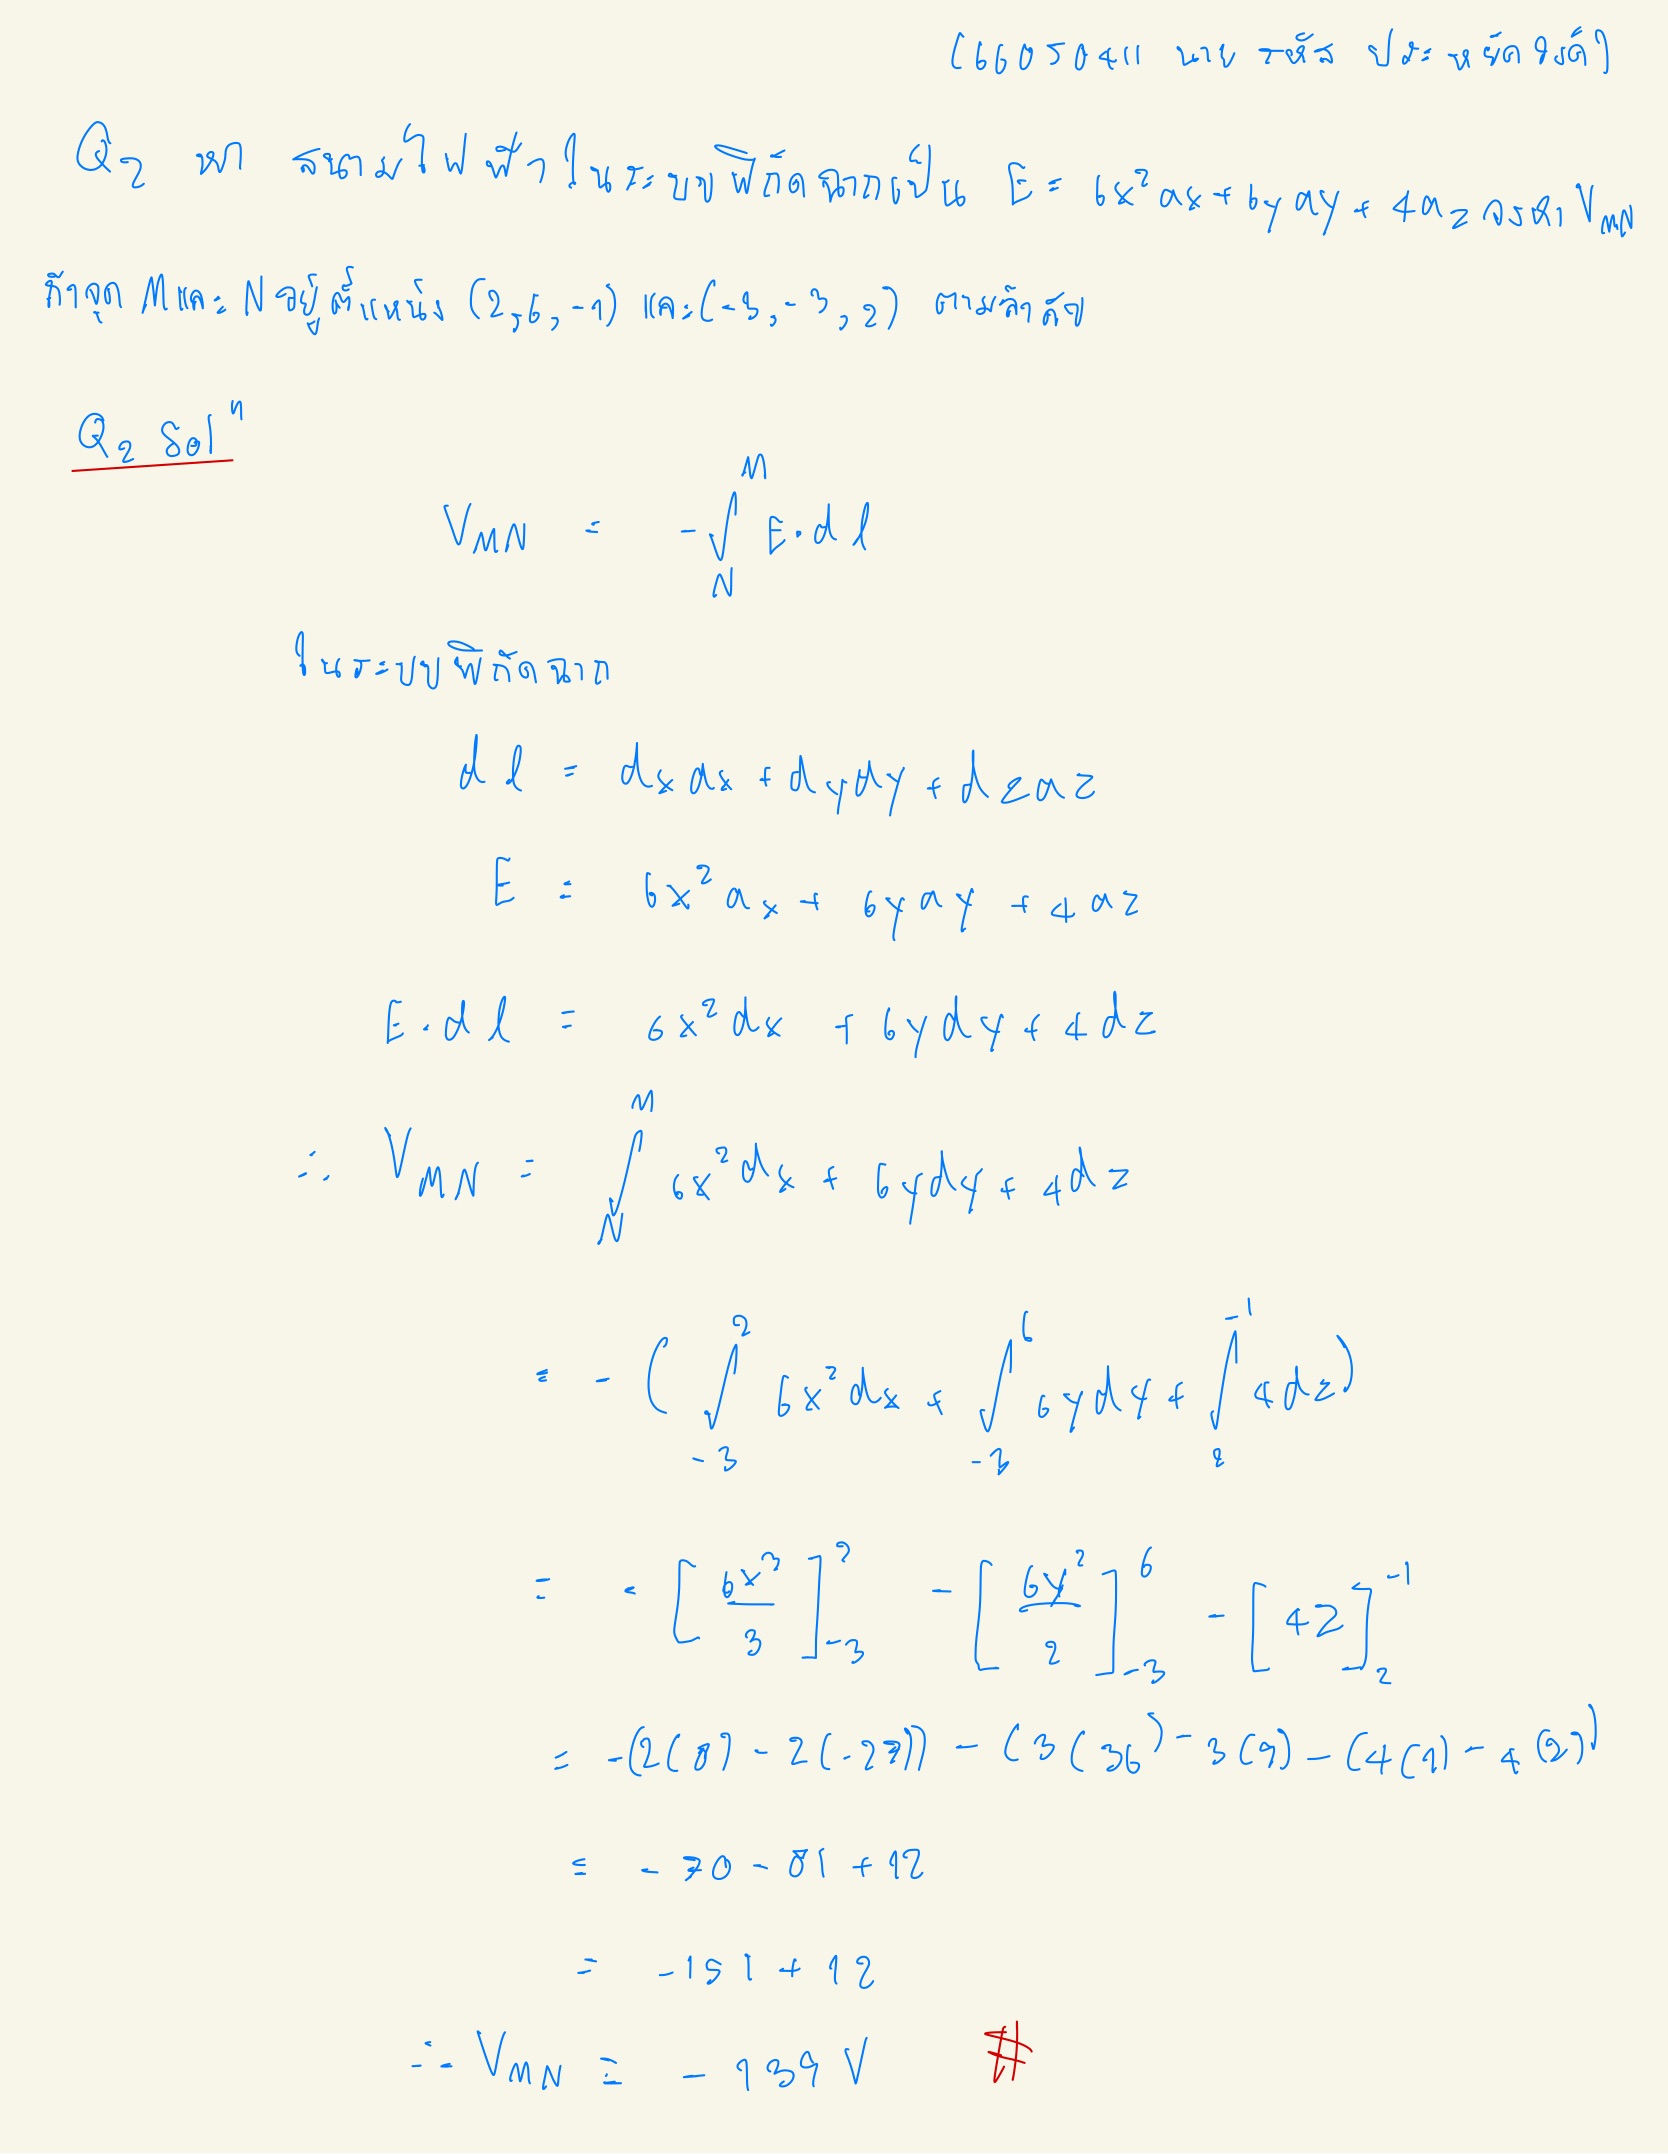 (66050411 นาย รหัส ประหยัดทรัพย์)
Q2 หา สนามไฟฟ้าในระบบพิกัดฉากเป็น E = 6x² ax + 6y ay + 4az จงหา VMN
ถ้าจุด M และ N อยู่ตำแหน่ง (2,6,-1) และ (-3,-3,2) ตามลำดับ
Q2 Solⁿ
VMN = -∫_N^M E·dl
ในระบบพิกัดฉาก
dl = dx ax + dy ay + dz az
E = 6x² ax + 6y ay + 4 az
E·dl = 6x² dx + 6y dy + 4 dz
∴ VMN = ∫_N^M 6x² dx + 6y dy + 4 dz
= -(∫_-3^2 6x² dx + ∫_-3^6 6y dy + ∫_2^-1 4 dz)
= -[6x³/3]_-3^2 - [6y²/2]_-3^6 - [4z]_2^-1
= -(2(8) - 2(-27)) - (3(36) - 3(9) - (4(1) - 4(2))
= -70 - 81 + 12
= -151 + 12
∴ VMN = -139 V #